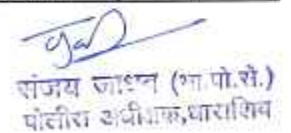 संजय जाधव (भा.पो.से.)
पोलीस अधीक्षक,धाराशिव